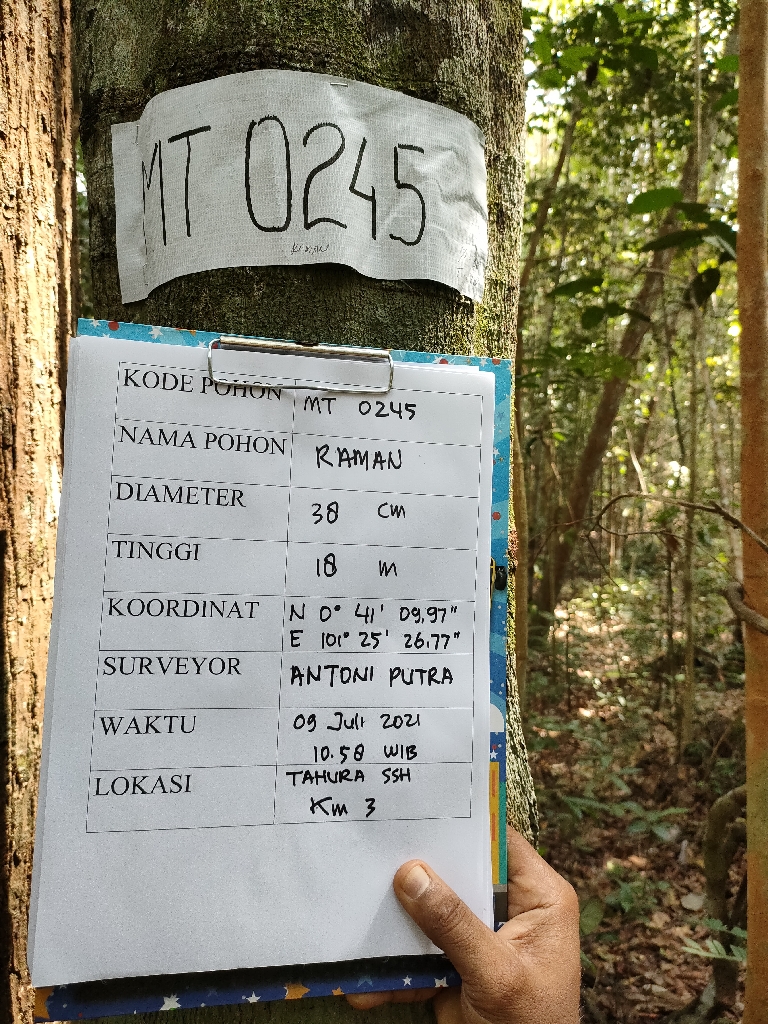 MT 0245
KODE POHON MT 0245
NAMA POHON RAMAN
DIAMETER 38 cm
TINGGI 18 m
KOORDINAT N 0° 41' 09,97"
E 101° 25' 26,77"
SURVEYOR ANTONI PUTRA
WAKTU 09 Juli 2021
10.58 WIB
LOKASI TAHURA SSH
Km 3